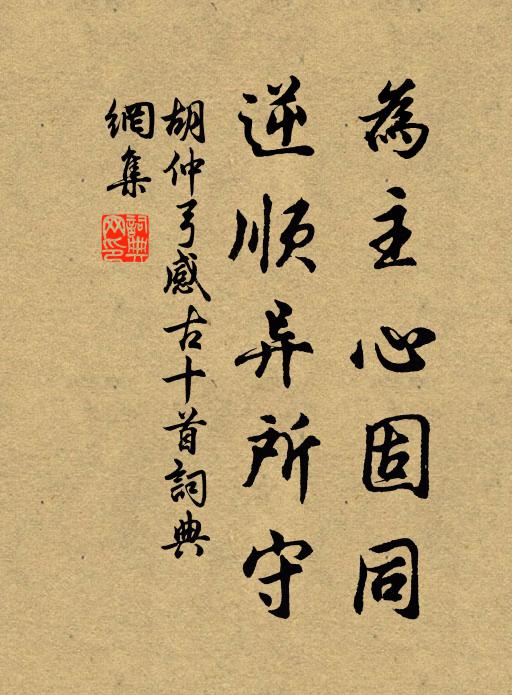 為主心固同
逆順异所守
胡仲弓感古十首詞典
網集
詞典網印